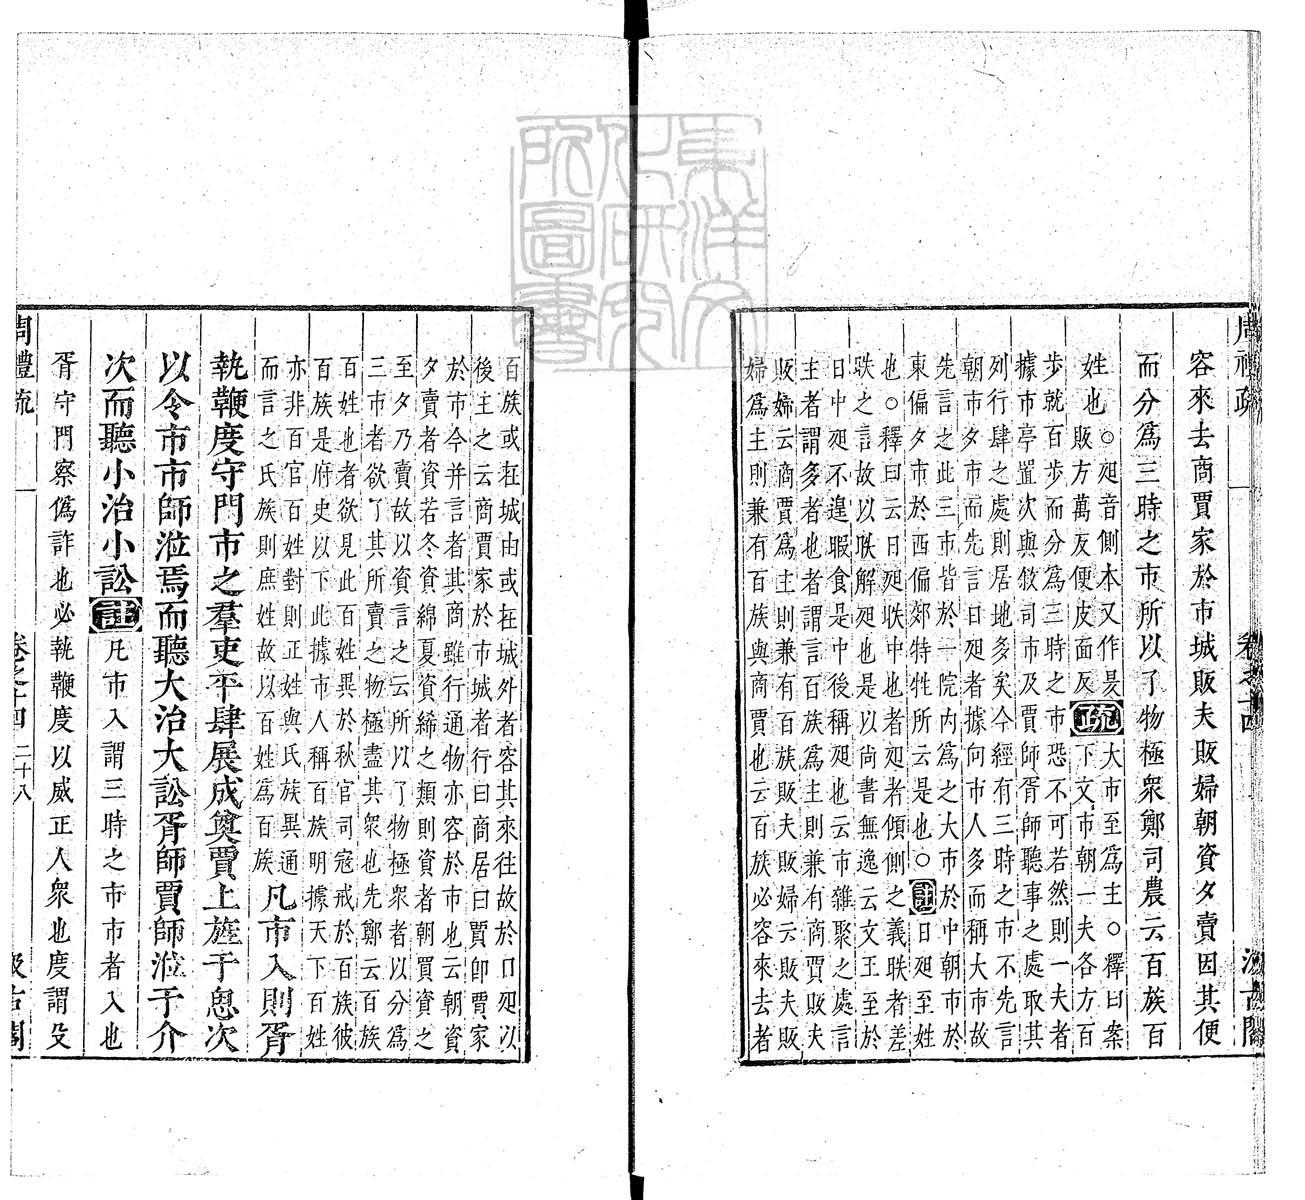 周禮疏 卷之十四 汲古閣
容來去商賈家於市城販夫販婦朝資夕賣因其便
而分爲三時之市所以了物極衆鄭司農云百族百
姓也○昃音側本又作㫼
販方萬反便皮面反疏大市至爲主○釋曰案
下文市朝一夫各方百
步就百步而分爲三時之市恐不可若然則一夫者
據市亭置次與敘司市及賈師胥師聽事之處取其
列行肆之處則居地多矣今經有三時之市不先言
朝市夕市而先言日昃者據向市人多而稱大市故
先言之此三市皆於一院内爲之大市於中朝市於
東偏夕市於西偏郊特牲所云是也○註日昃至姓
也○釋曰云日昃昳中也者昃者傾側之義昳者差
昳之言故以昳解昃也是以尚書無逸云文王至於
日中昃不遑暇食是中後稱昃也云市雜聚之處言
主者謂多者也者謂言百族爲主則兼有商賈販夫
販婦云商賈爲主則兼有百族販夫販婦云販夫販
婦爲主則兼有百族與商賈也云百族必容來去者
百族或在城内或在城外者容其來往故於日昃以
後主之云商賈家於市城者行曰商居曰賈卽賈家
於市今并言者其商雖行通物亦容於市也云朝資
夕賣者資若冬資綿夏資絺之類則資者朝買資之
至夕乃賣故以資言之云所以了物極衆者以分爲
三市者欲了其所賣之物極盡其衆也先鄭云百族
百姓也者欲見此百姓異於秋官司寇戒於百族彼
百族是府史以下此據市人稱百族明據天下百姓
亦非百官百姓對則正姓與氏族異通
而言之氏族則庶姓故以百姓爲百族凡市入則胥
執鞭度守門市之羣吏平肆展成奠賈上旌于思次
以令市市師涖焉而聽大治大訟胥師賈師涖于介
次而聽小治小訟註凡市入謂三時之市市者入也
胥守門察僞詐也必執鞭度以威正人衆也度謂殳
周禮疏 卷之十四 二十八 汲古閣